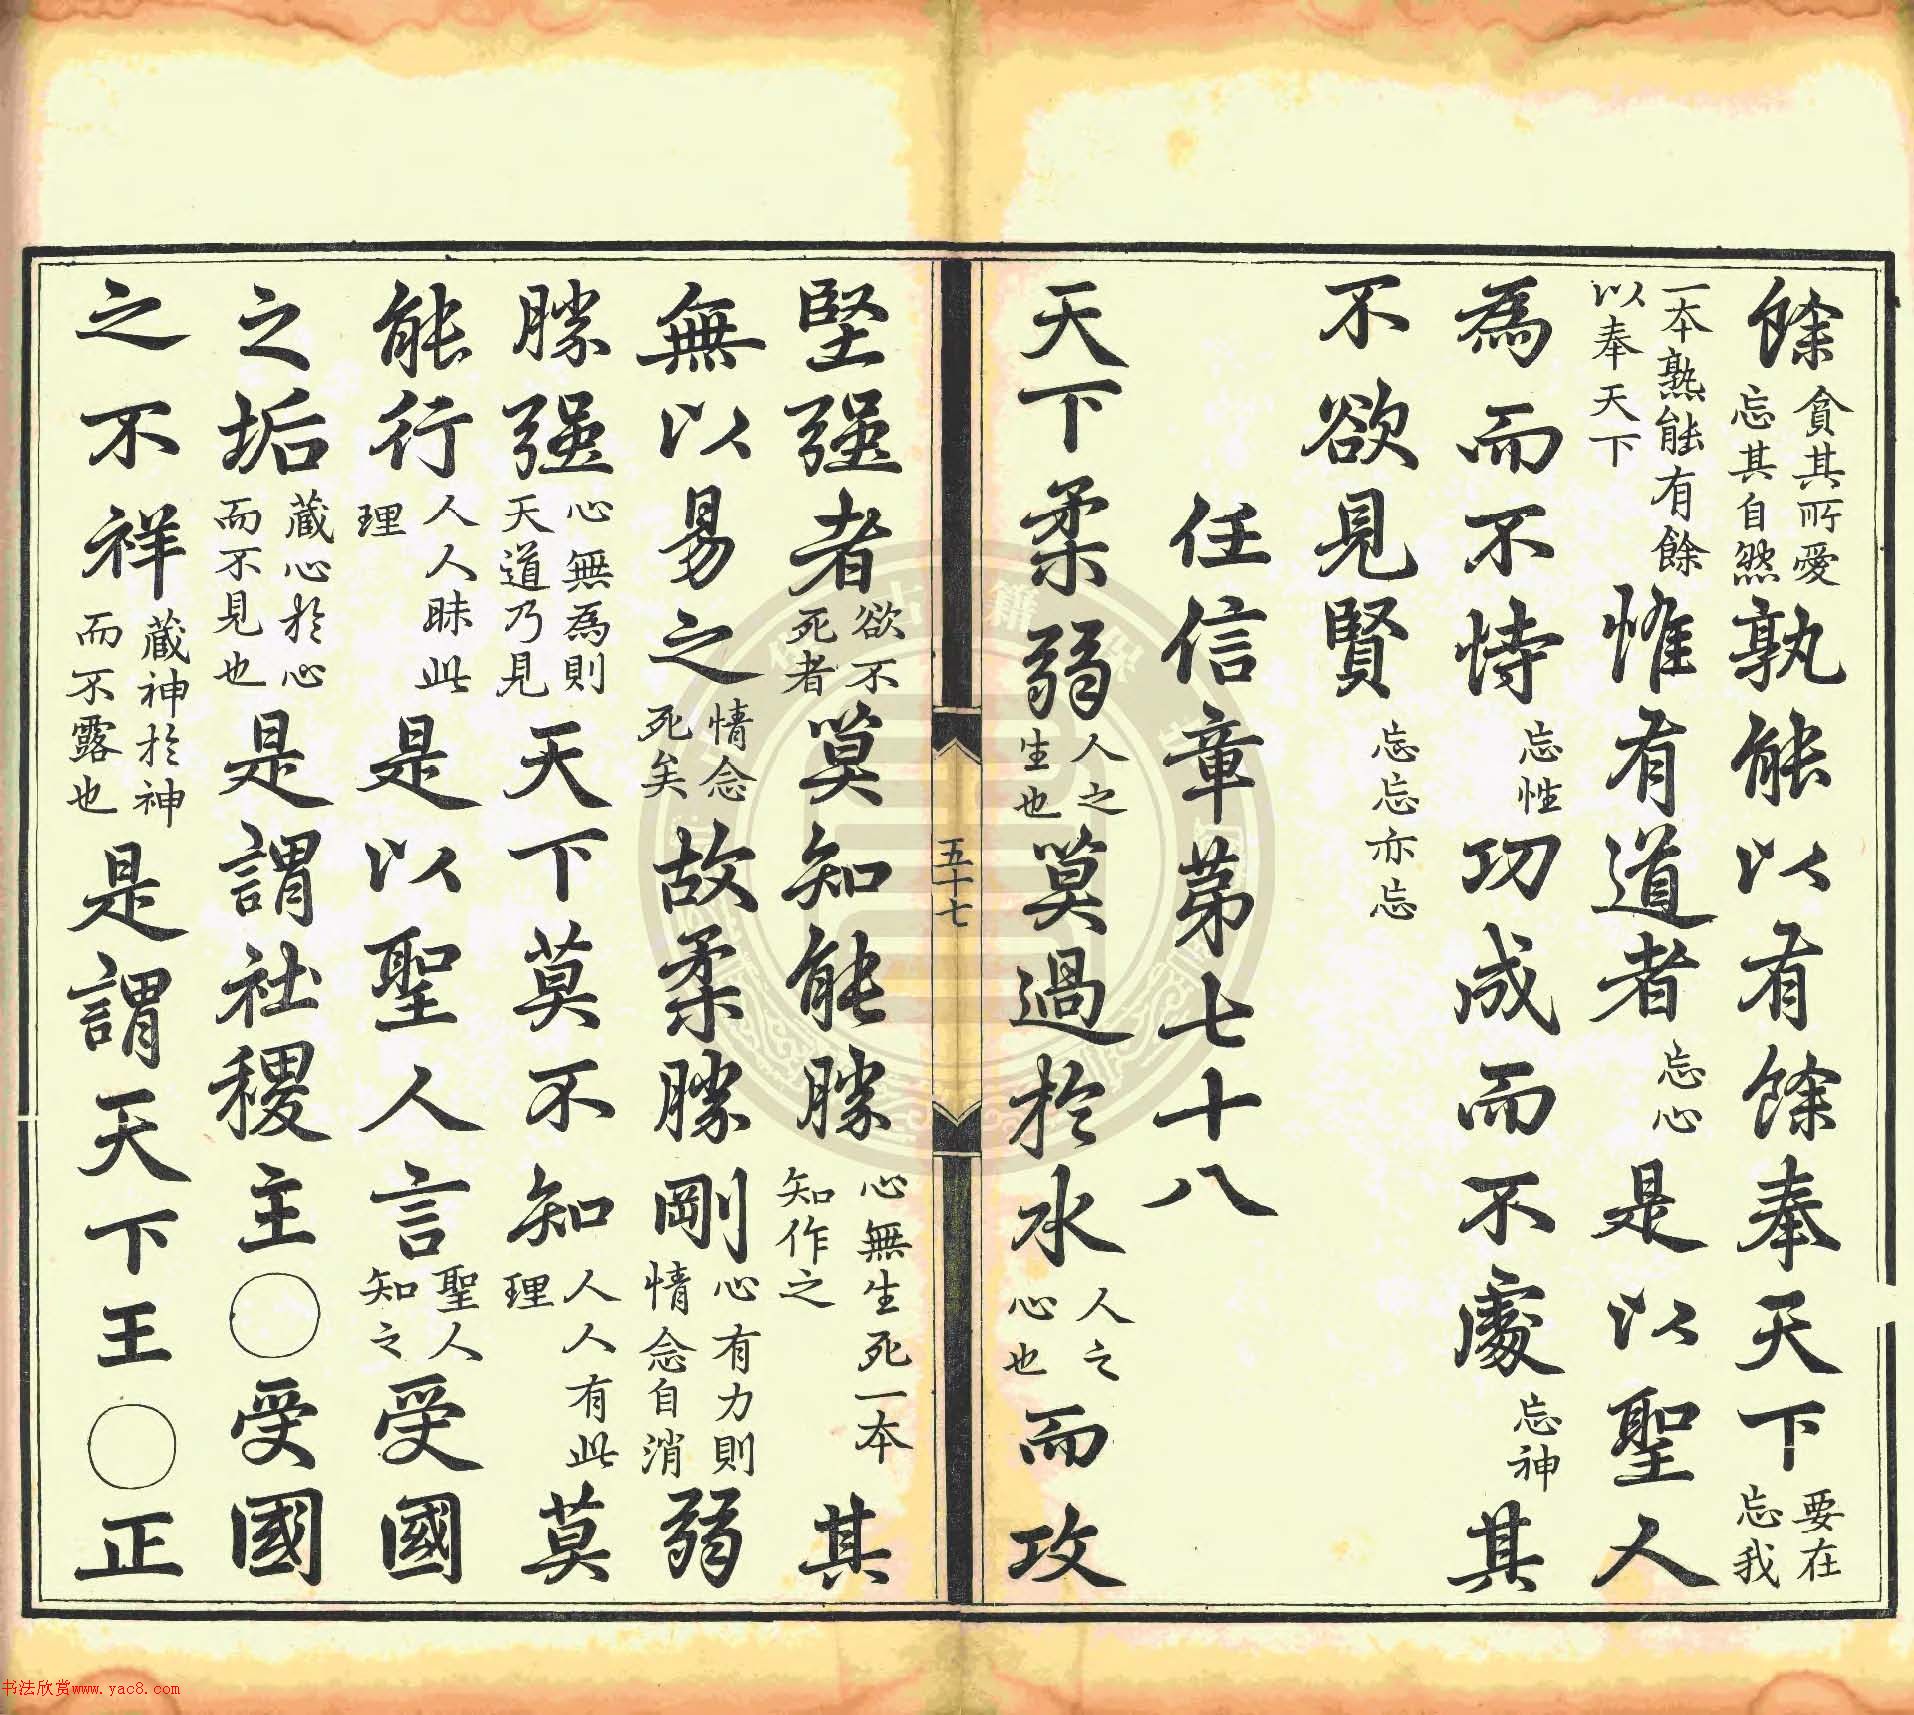 餘貪其所愛忘其自然孰能以有餘奉天下要在忘我
一本熟能有餘以奉天下惟有道者忘心是以聖人
為而不恃忘性功成而不處忘神其
不欲見賢忘忘亦忘
任信章第七十八
天下柔弱人之生也莫過於水人之心也而攻
五十七
堅强者欲不死者莫知能勝心無生死一本知作之其
無以易之情念死矣故柔勝剛心有力則情念自消弱
勝强心無為則天道乃見天下莫不知人人有此理莫
能行人人昧此理是以聖人言聖人知之受國
之垢藏心於心而不見也是謂社稷主〇受國
之不祥藏神於神而不露也是謂天下王〇正
书法欣赏www.yac8.com